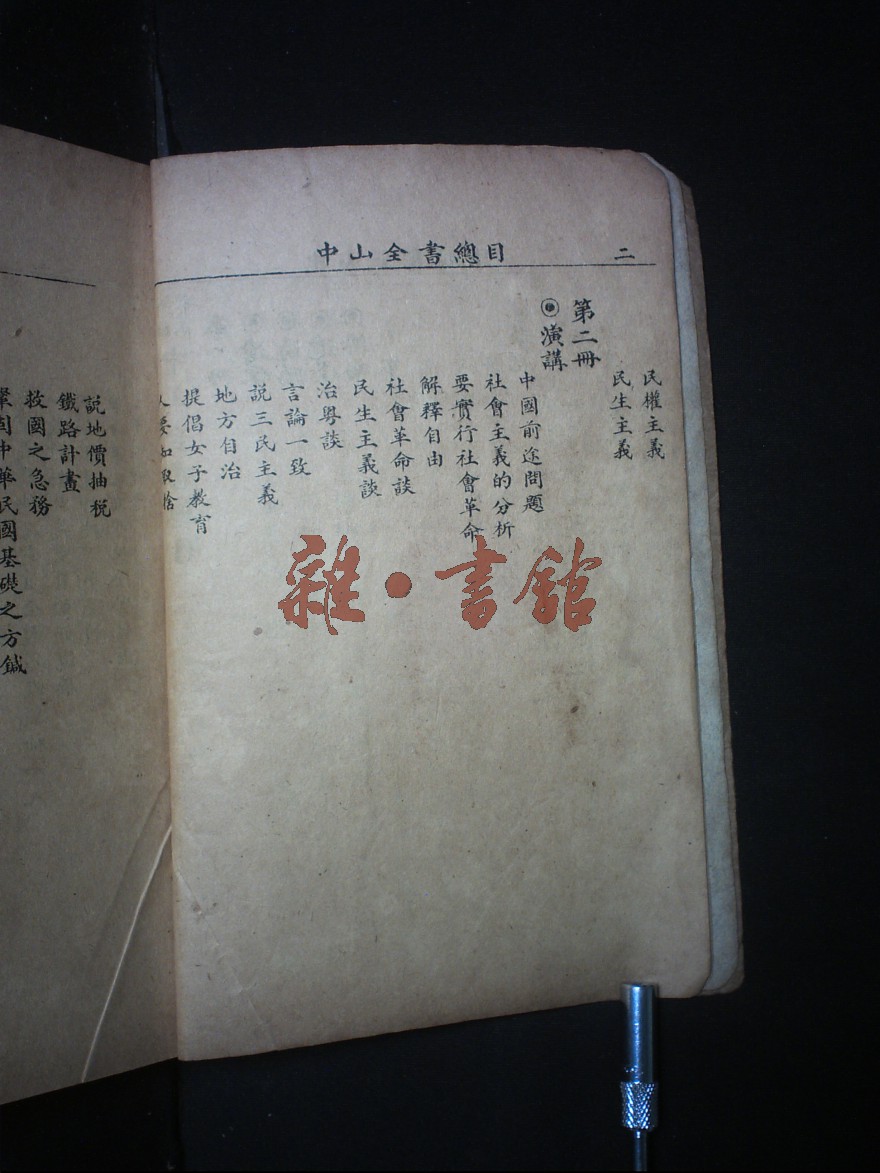 中山全書總目
二
民權主義
民生主義
第二冊
◉演講
中國前途問題
社會主義的分析
要實行社會革命
解釋自由
社會革命談
民生主義談
治粵談
言論一致
說三民主義
地方自治
提倡女子教育
人要知取捨
說地價抽税
鐵路計畫
救國之急務
鞏固中華民國基礎之方鍼
雜·書館